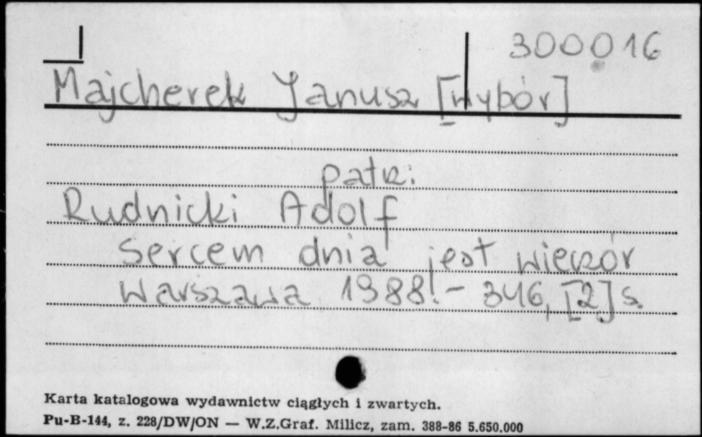 300016
Majcherek Janusz [Wybór]
patrz:
Rudnicki Adolf
Sercem dnia jest wieczór
Warszawa 1988.- 346, [2] s.
Karta katalogowa wydawnictw ciągłych i zwartych.
Pu-B-144, z. 228/DW/ON — W.Z.Graf. Milicz, zam. 388-86 5.650.000